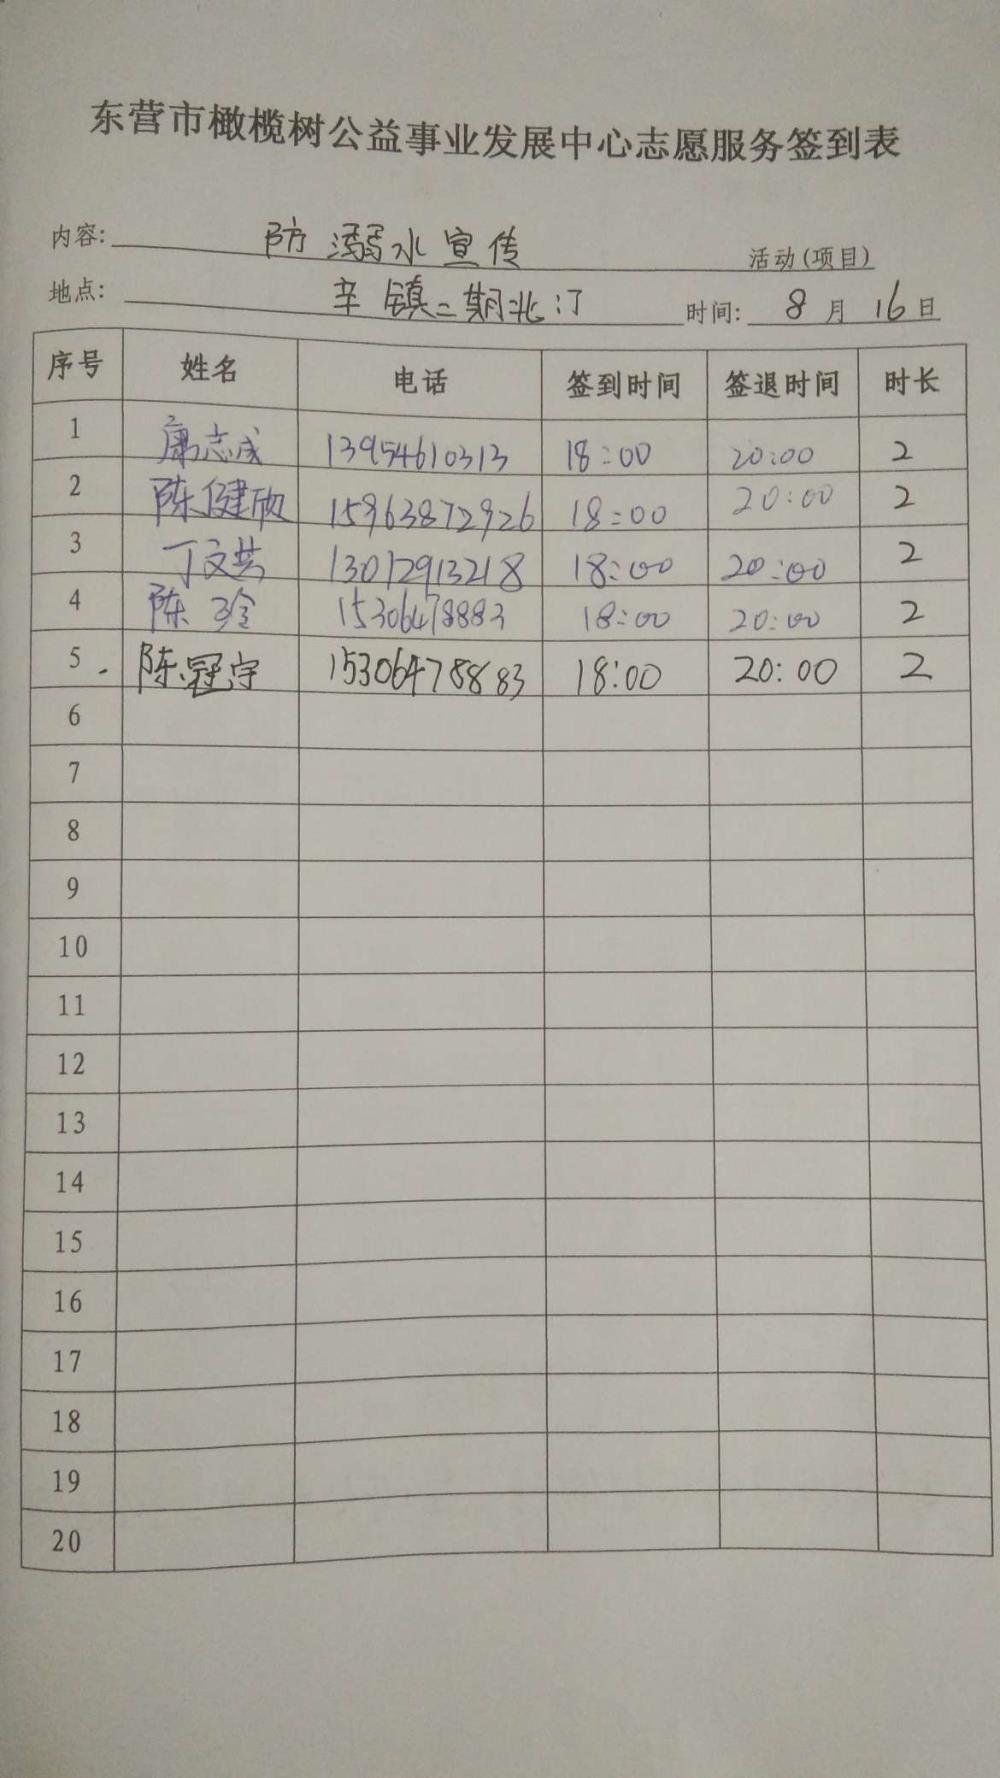 东营市橄榄树公益事业发展中心志愿服务签到表
内容: 防溺水宣传 活动(项目)
地点: 辛镇二期北汀 时间: 8月16日
序号 姓名 电话 签到时间 签退时间 时长
1 康志成 13954610313 18:00 20:00 2
2 陈健欣 15963872926 18:00 20:00 2
3 丁文芸 13012913218 18:00 20:00 2
4 陈玲 15306478883 18:00 20:00 2
5 陈冠宇 15306478883 18:00 20:00 2
6
7
8
9
10
11
12
13
14
15
16
17
18
19
20